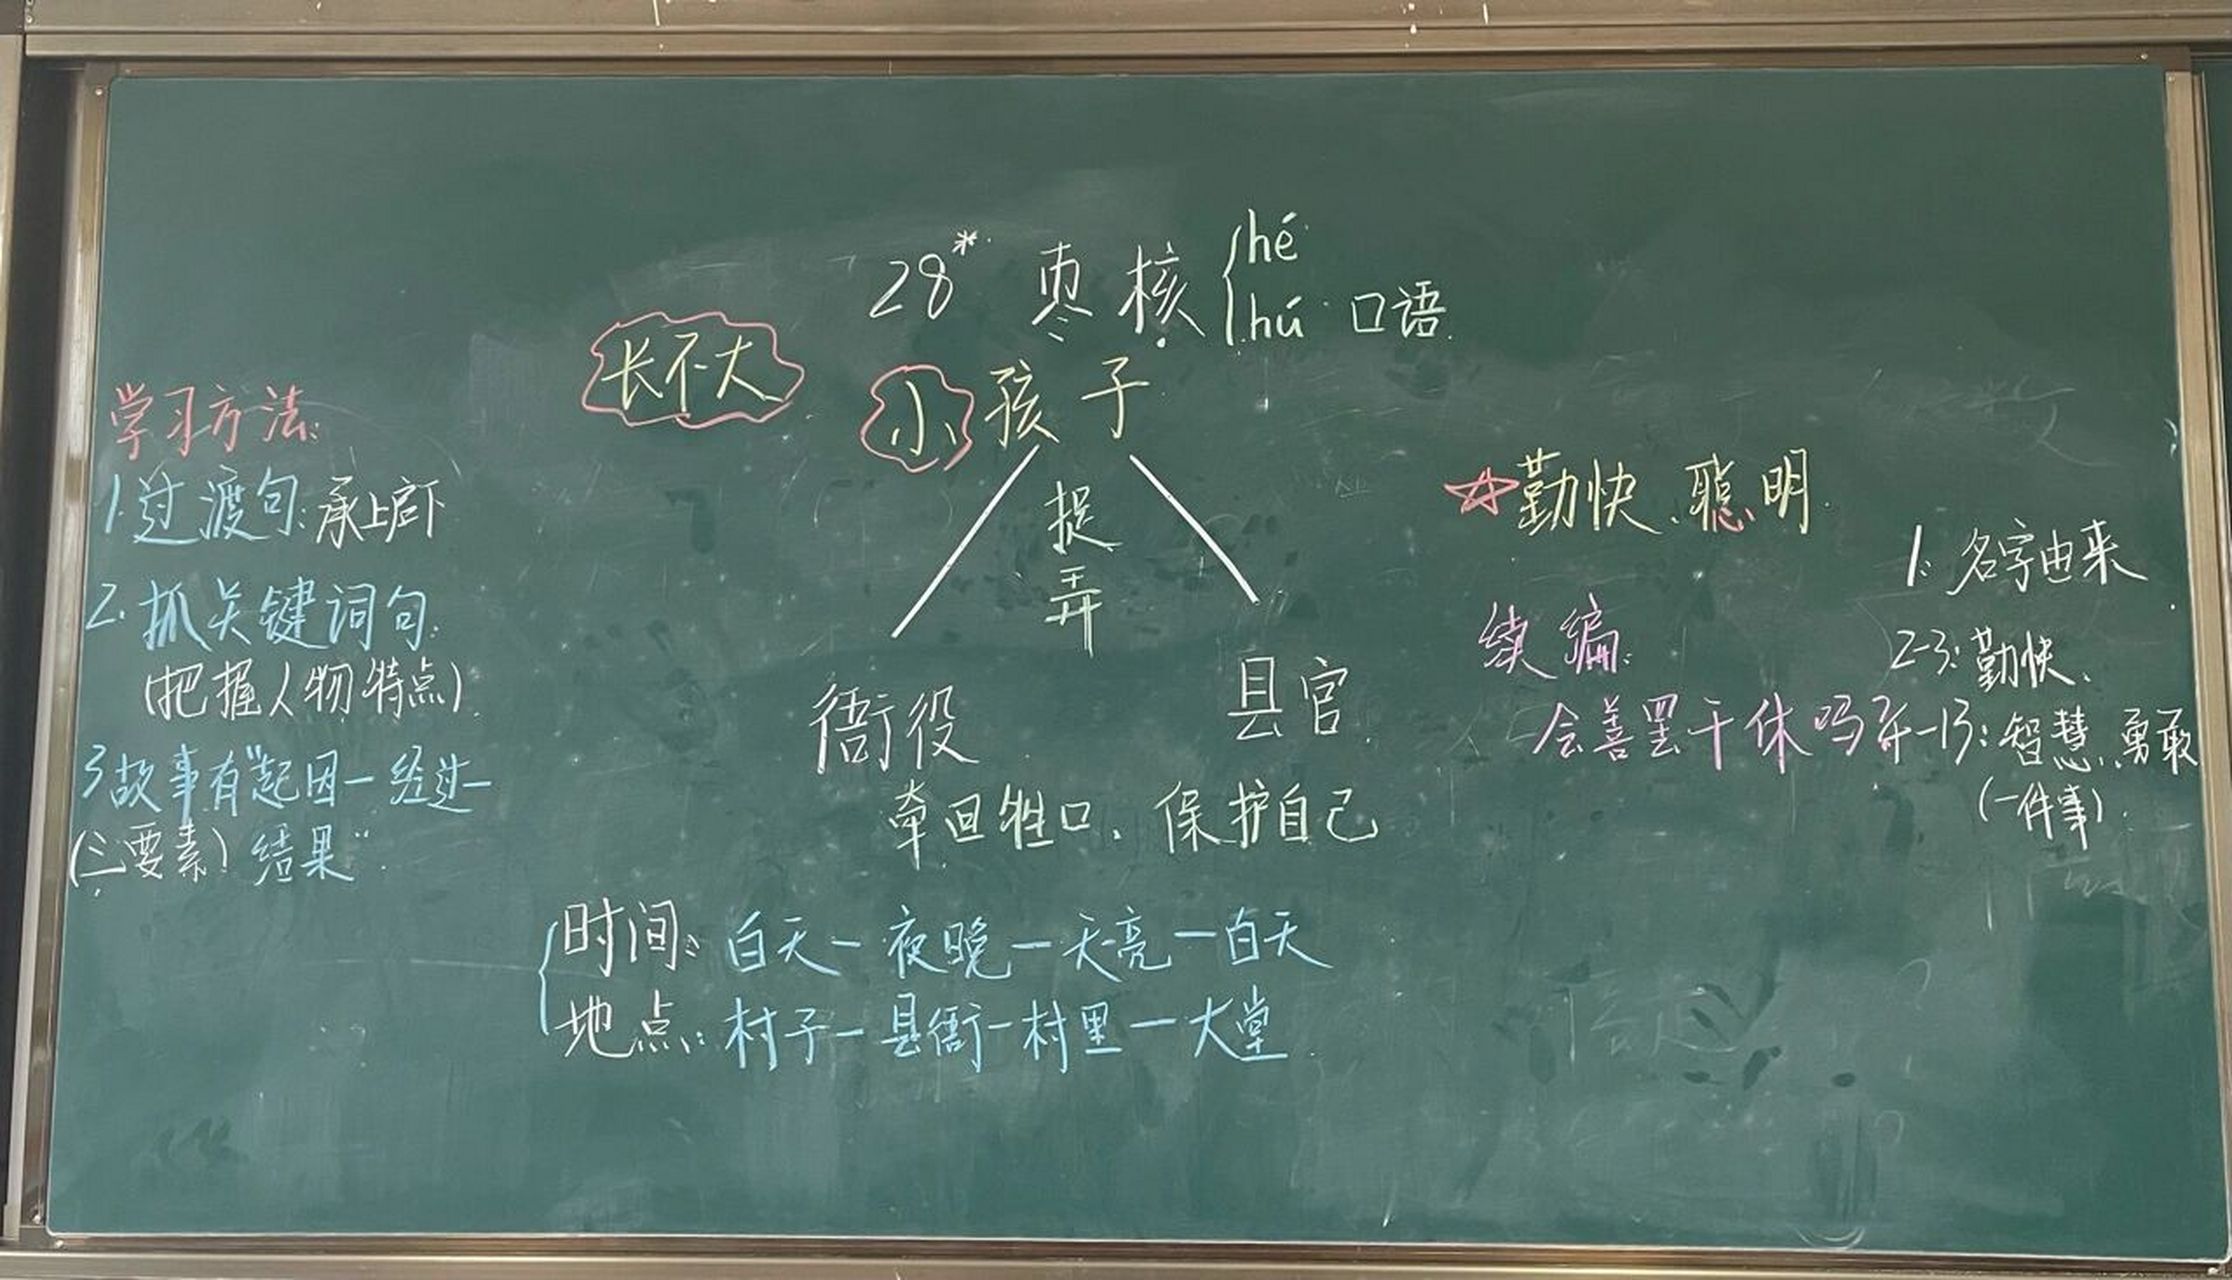 28* 枣核 hé
hú 口语
长不大
小孩子
捉弄
衙役
县官
牵回牲口、保护自己
时间: 白天—夜晚—天亮—白天
地点: 村子—县衙—村里—大堂
学习方法:
1.过渡句:承上启下
2.抓关键词句:
(把握人物特点)
3故事有"起因—经过—
(三要素) 结果"
☆勤快、聪明
续编:
会善罢干休吗
1: 名字由来
2-3: 勤快、
-13: 智慧、勇敢
(一件事)